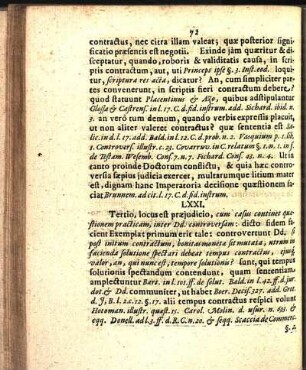 72
contractus, nec citra illam valeat; quæ posterior signi-
ficatio præsentis est negotii. Exinde jàm quæritur & di-
sceptatur, quando, roboris & validitatis causa, in scri-
ptis contractum, aut, uti Princeps ipse §. 3. Inst. eod. loqui-
tur, scriptura res acta, dicatur? An, cum simpliciter par-
tes convenerunt, in scriptis fieri contractum debere,
quod statuunt Placentinus & Azo, quibus adstipulantur
Glossa & Castrens. in l. 17. C. d. fid. instrum. add. Sichard. ibid. n.
3. an verò tum demum, quando verbis expressis placuit,
ut non aliter valeret contractus? quæ sententia est Sa-
lic. in d. l. 17. add. Bald. in l. 12. C. d. prob. n. 2. Vasquium p. 1. lib.
1. Controvers. illustr. c. 23. Covarruv. in C. relatum §. 1. n. 1. inf.
de Testam. Wesemb. Cons. 7. n. 7. Sichard. Cons. 43. n. 4. Uti in
tanto proinde Doctorum conflictu, & quia hæc contro-
versia sæpius judicia exercet, multarumque litium mater
est, dignam hanc Imperatoria decisione quæstionem fa-
ciat Brunnem. ad cit. l. 17. C. d. fid. instrum.
LXXI.
Tertiò, locus est præjudicio, cum casus continet quæ-
stionem practicam, inter Dd. controversam: dicto fidem fa-
cient Exempla: primum erit tale: controvertunt Dd. si
post initum contractum, bonitas moneta sit mutata, utrum in
facienda solutione spectari debeat tempus contractus, ejusq;
valor, an, qui nunc est, tempore solutionis? sunt, qui tempus
solutionis spectandum contendunt, quam sententiam
amplectuntur Bart. in l. 101. ff. de solut. Bald. in l. 42. ff. d. jur.
dot. & Dd. communiter, ut habet Baer. Decis. 327. add. Got.
d. J. B. l. 2. c. 12. §. 17. alii tempus contractus respici volunt
Hotoman. illustr. quæst. 15. Carol. Molin. d. usur. n. 693. &
sqq. Donell. ad l. 3. ff. d. R. C. n. 20. & seqq. Scaccia de Comment.
§. 2.